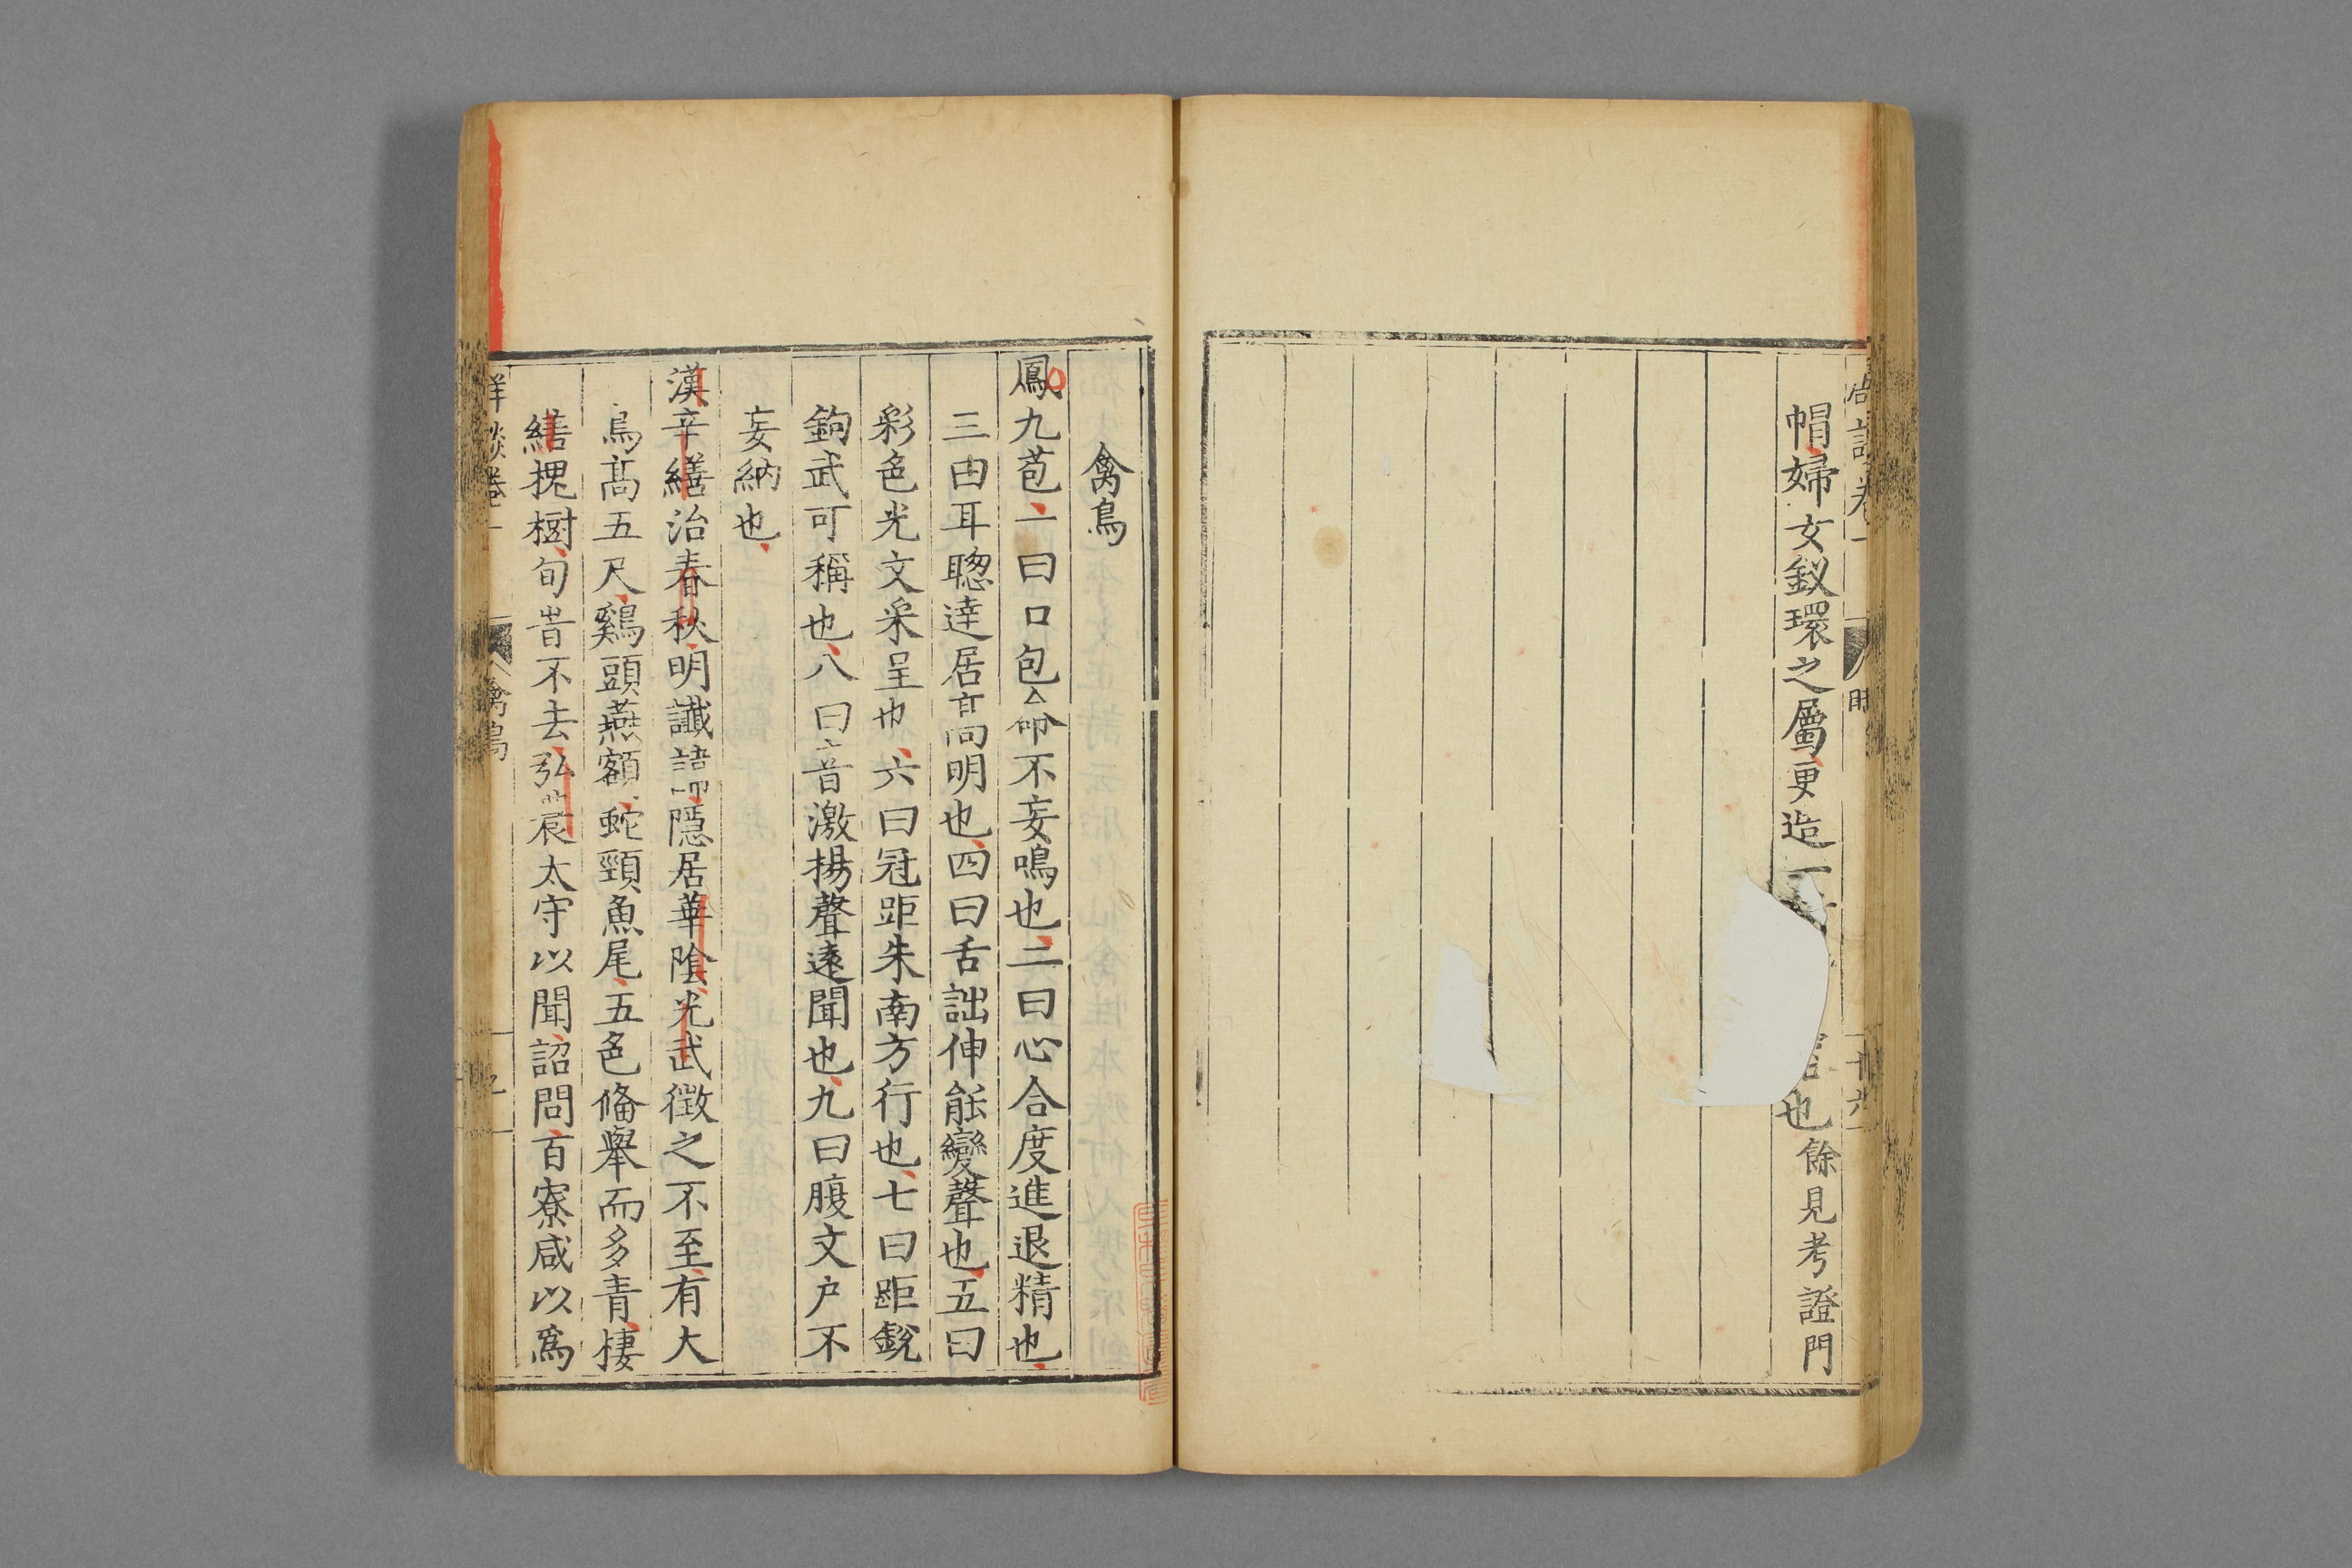 帽婦女釵環之屬更造一
也餘見考證門
禽鳥
鳳九苞一曰口包命不妄鳴也二曰心合度進退精也
三曰耳聰達居高明也四曰舌詘伸能變聲也五曰
彩色光文采呈也六曰冠距朱南方行也七曰距銳
鉤武可稱也八曰音激揚聲遠聞也九曰腹文户不
妄納也
漢辛繕治春秋明讖緯隱居華陰光武徵之不至有大
鳥髙五尺鷄頭燕額蛇頸魚尾五色備舉而多青棲
繕槐樹旬昔不去弘農太守以聞詔問百寮咸以爲